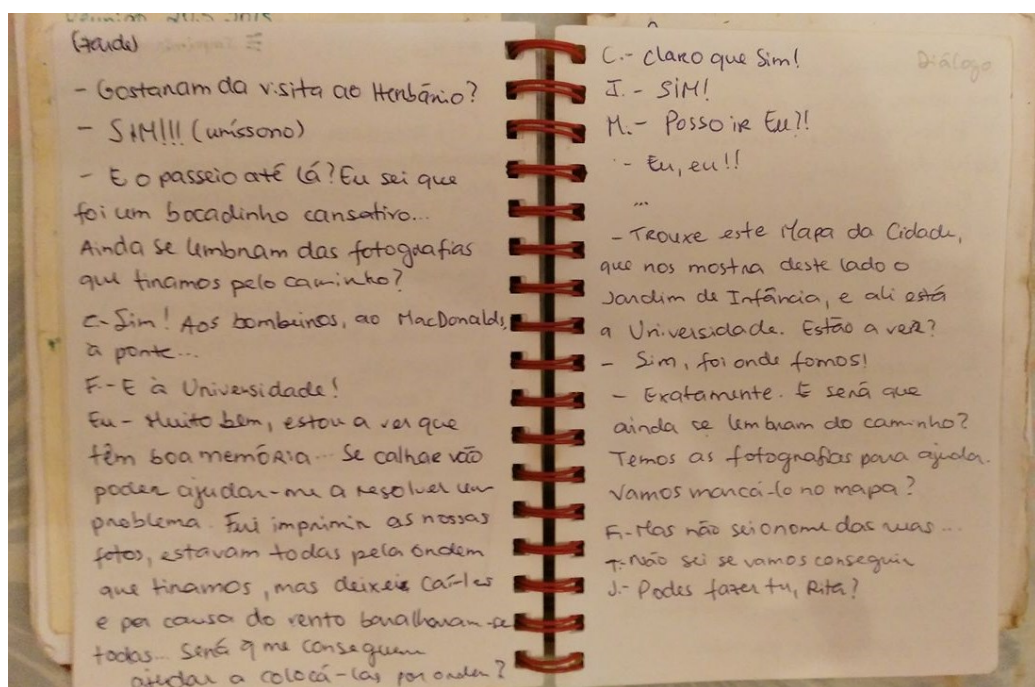 (tarde)
- Gostaram da visita ao Herbário?
- SIM!!! (uníssono)
- E o passeio até lá? Eu sei que
foi um bocadinho cansativo...
Ainda se lembram das fotografias
que tiramos pelo caminho?
C.- Sim! Aos bombeiros, ao MacDonalds,
à ponte...
F.- E à Universidade!
Eu - Muito bem, estou a ver que
têm boa memória... Se calhar vão
poder ajudar-me a resolver um
problema. Fui imprimir as nossas
fotos, estavam todas pela ordem
que tiramos, mas deixei caí-las
e por causa do vento baralharam-se
todas... Será q me conseguem
ajudar a colocá-las por ordem?
Diálogo
C.- Claro que Sim!
I. - SIM!
M.- Posso ir Eu?!
- Eu, eu!!
...
- Trouxe este Mapa da Cidade,
que nos mostra deste lado o
Jardim de Infância, e ali está
a Universidade. Estão a ver?
- Sim, foi onde fomos!
- Exatamente. E será que
ainda se lembram do caminho?
Temos as fotografias para ajudar.
Vamos marcá-lo no mapa?
F.- Mas não sei o nome das ruas...
T.- Não sei se vamos conseguir
J.- Podes fazer tu, Rita?